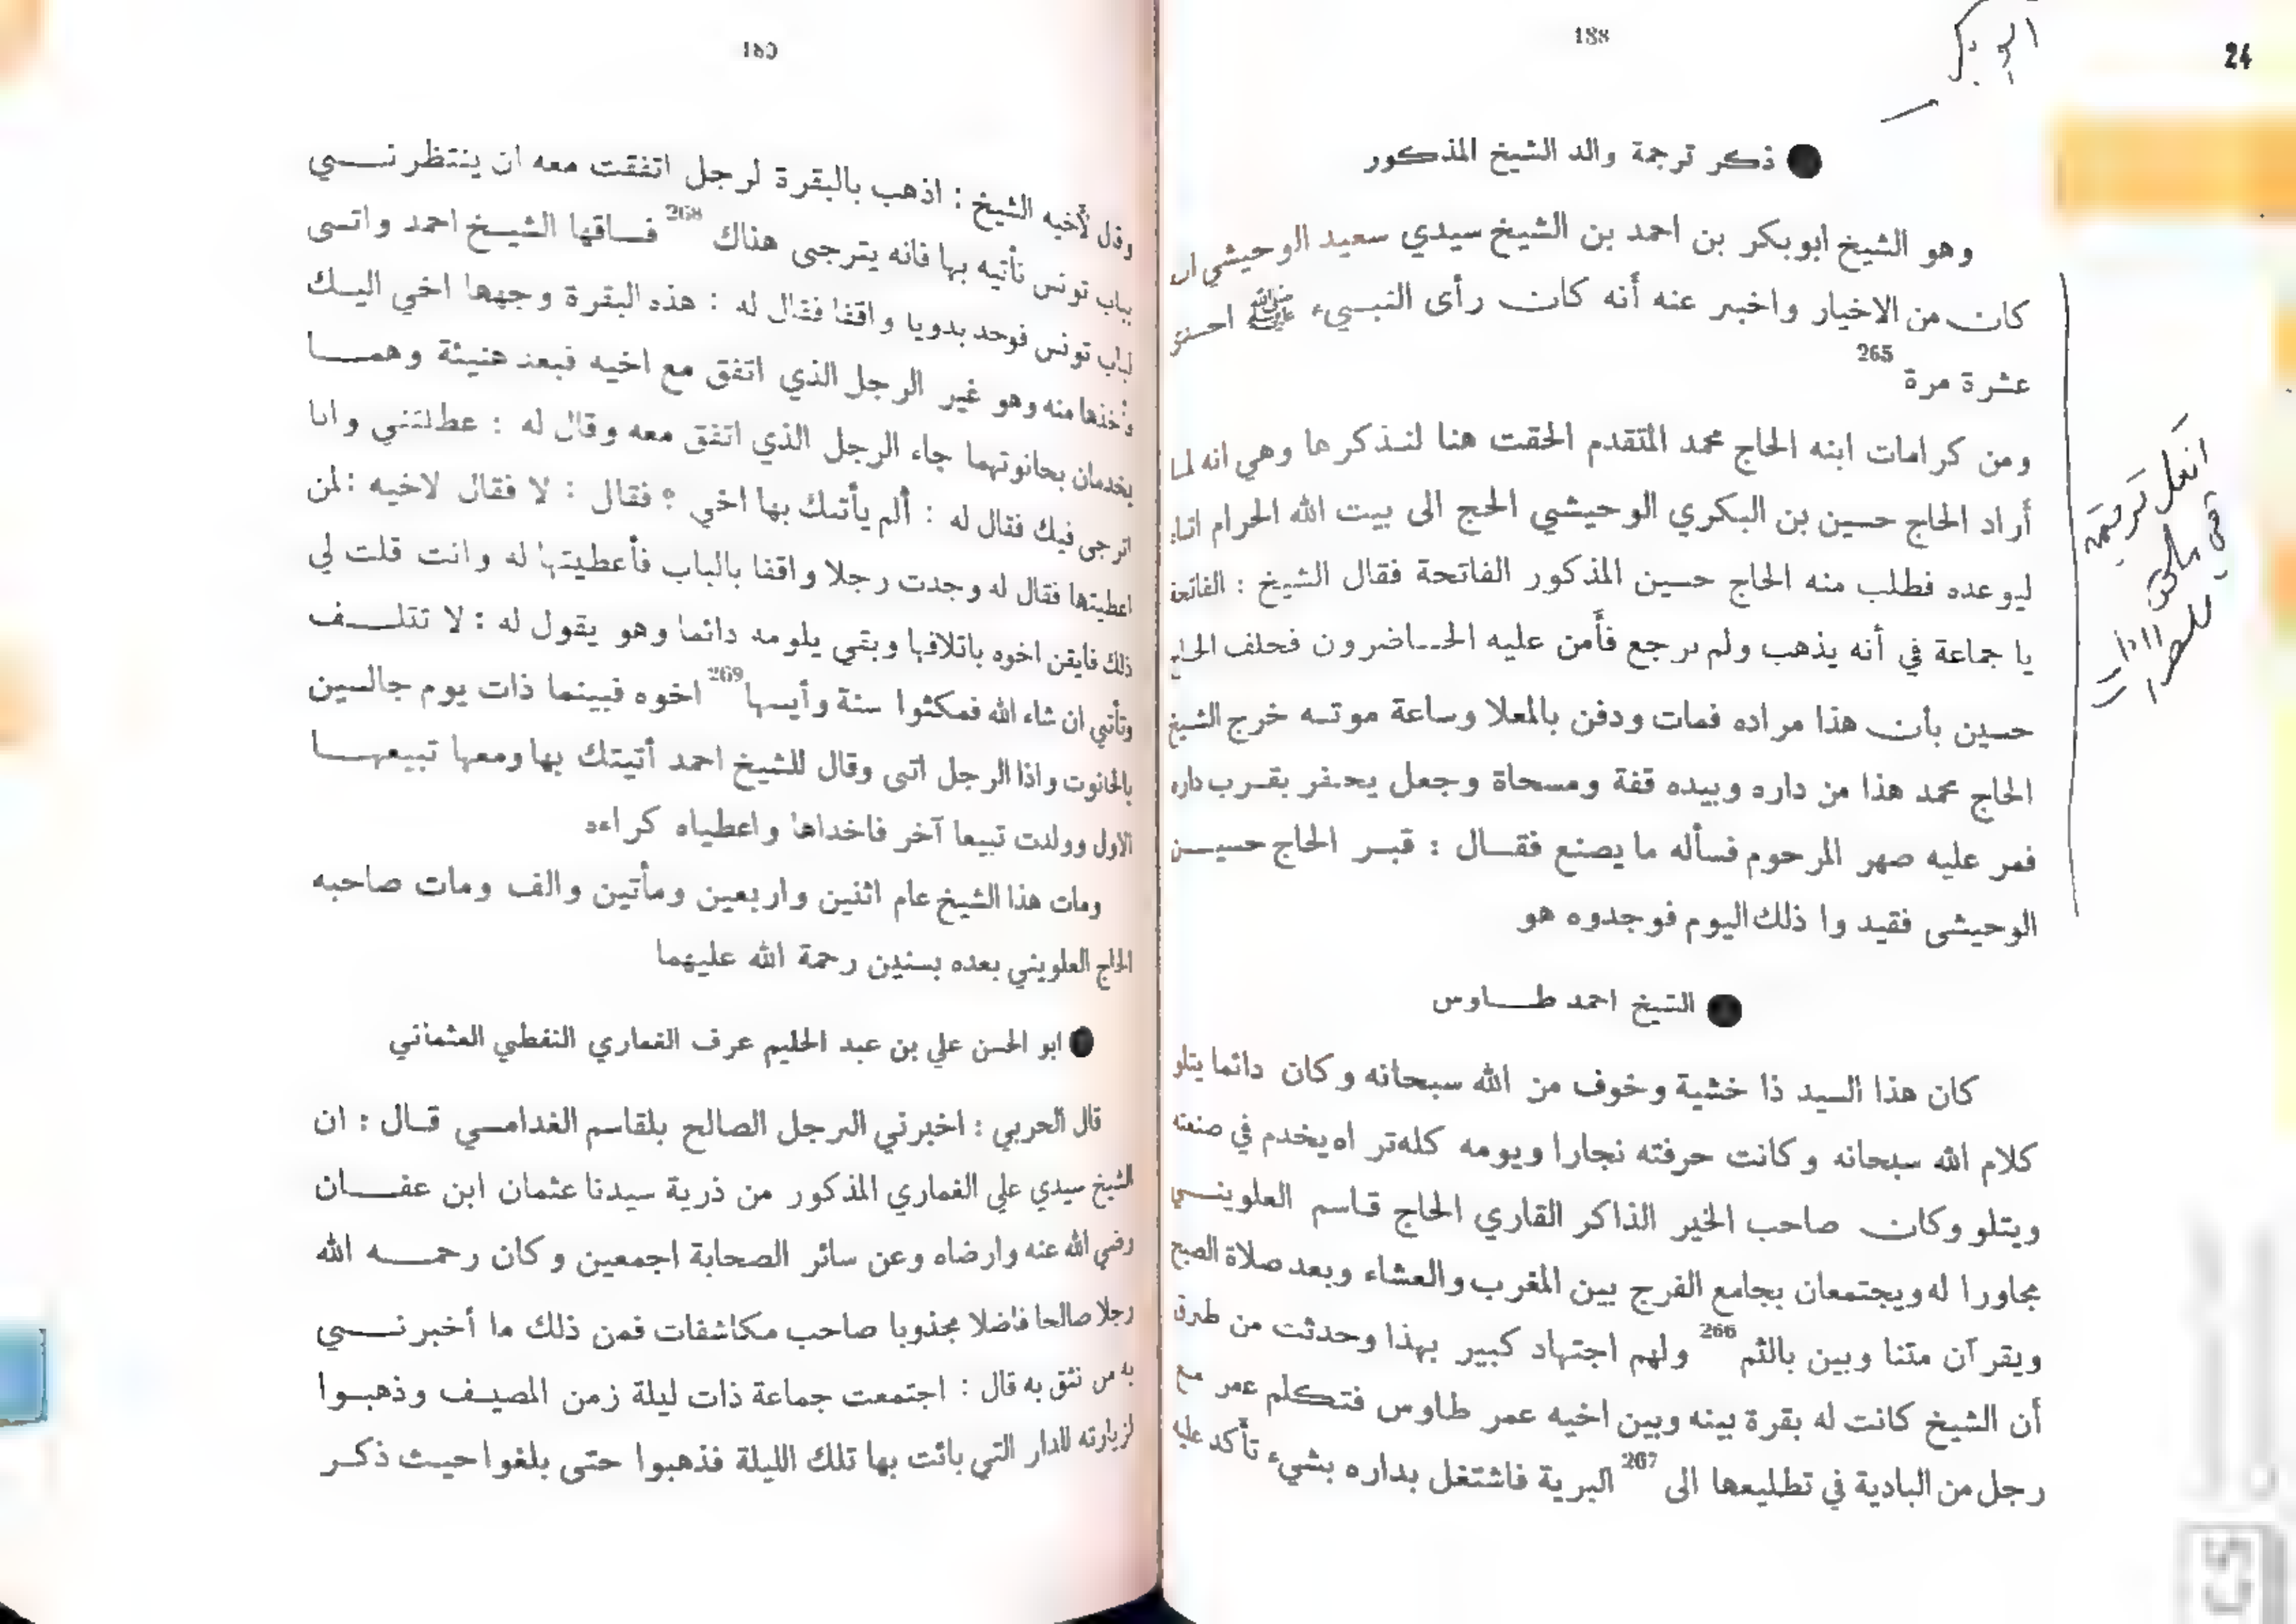 24
188
● ذكر ترجمة والد الشيخ المذكور
وهو الشيخ ابوبكر بن احمد بن الشيخ سيدي سعيد الوحيشي
كان من الاخيار واخبر عنه أنه كان رأى النبيء ﷺ احدى
عشرة مرة 265
ومن كرامات ابنه الحاج محمد المتقدم الحقت هنا لنذكرها وهي انه لما
أراد الحاج حسين بن البكري الوحيشي الحج الى بيت الله الحرام اتاه
ليوعده فطلب منه الحاج حسين المذكور الفاتحة فقال الشيخ : الفاتحة
يا جماعة في أنه يذهب ولم يرجع فأمن عليه الحاضرون فحلف الحاج
حسين بأن هذا مراده فمات ودفن بالمعلا وساعة موته خرج الشيخ
الحاج محمد هذا من داره وبيده قفة ومسحاة وجعل يحفر بقرب داره
فمر عليه صهر المرحوم فسأله ما يصنع فقال : قبر الحاج حسين
الوحيشى فقيد وا ذلك اليوم فوجدوه هو
● الشيخ احمد طاوس
كان هذا السيد ذا خشية وخوف من الله سبحانه وكان دائما يتلو
كلام الله سبحانه وكانت حرفته نجارا ويومه كله تر اه يخدم في صنعته
ويتلو وكان صاحب الخير الذاكر القاري الحاج قاسم العلويني
مجاورا له ويجتمعان بجامع الفرج بين المغرب والعشاء وبعد صلاة الصبح
ويقرآن متنا وبين بالثم 266 ولهم اجتهاد كبير بهذا وحدثت من طرق
أن الشيخ كانت له بقرة بينه وبين اخيه عمر طاوس فتكلم عمر مع
رجل من البادية في تطليعها الى 267 البرية فاشتغل بداره بشيء تأكد عليه
وقال لأخيه الشيخ : اذهب بالبقرة لرجل اتفقت معه ان ينتظرني
بباب تونس تأتيه بها فانه يترجى هناك 268 فساقها الشيخ احمد واتى
لباب تونس فوجد بدويا واقفا فقال له : هذه البقرة وجهها اخي اليك
وأخذها منه وهو غير الرجل الذي اتفق مع اخيه فبعد هنيئة وهما
يخدمان بحانوتهما جاء الرجل الذي اتفق معه وقال له : عطلتني وانا
اترجى فيك فقال له : ألم يأتك بها اخي ؟ فقال : لا فقال لاخيه : لمن
اعطيتها فقال له وجدت رجلا واقفا بالباب فأعطيتها له وانت قلت لي
ذلك فايقن اخوه باتلافها وبقي يلومه دائما وهو يقول له : لا تتلف
وتأتي ان شاء الله فمكثوا سنة وأيسها 269 اخوه فبينما ذات يوم جالسين
بالحانوت واذا الرجل اتى وقال للشيخ احمد أتيتك بها ومعها تبيعها
الاول وولدت تبيعا آخر فاخداها واعطياه كراءه
ومات هذا الشيخ عام اثنين واربعين ومأتين والف ومات صاحبه
الحاج العلويني بعده بسنين رحمة الله عليهما
● ابو الحسن علي بن عبد الحليم عرف الغماري النفطي العثماني
قال الحربي : اخبرني الرجل الصالح بلقاسم الغدامسي قال : ان
الشيخ سيدي علي الغماري المذكور من ذرية سيدنا عثمان ابن عفان
رضي الله عنه وارضاه وعن سائر الصحابة اجمعين وكان رحمه الله
رجلا صالحا فاضلا مجذوبا صاحب مكاشفات فمن ذلك ما أخبرني
به من نثق به قال : اجتمعت جماعة ذات ليلة زمن المصيف وذهبوا
لزيارته للدار التي بائت بها تلك الليلة فذهبوا حتى بلغوا حيث ذكر